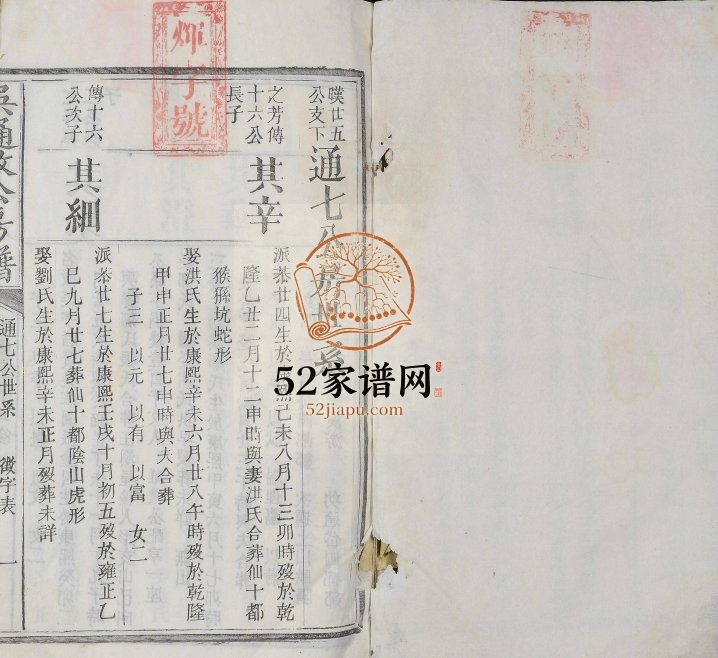 嘆廿五
公支下
通七公房世系
之芳傳
十六公
長子
其辛
派泰廿四生於康熙己未八月十三卯時歿於乾
隆乙丑二月十二申時與妻洪氏合葬仙十都
猴猻坑蛇形
娶洪氏生於康熙辛未六月廿八午時歿於乾隆
甲申正月廿七申時與夫合葬
子三 以元 以有 以富 女二
傳十六
公次子
其細
派泰廿七生於康熙壬戌十月初五歿於雍正乙
巳九月廿七葬仙十都陰山虎形
娶劉氏生於康熙辛未正月歿葬未詳
吳通公房譜
通七公世系
徵字表
一
輝字號
52家谱网
52jiapu.com